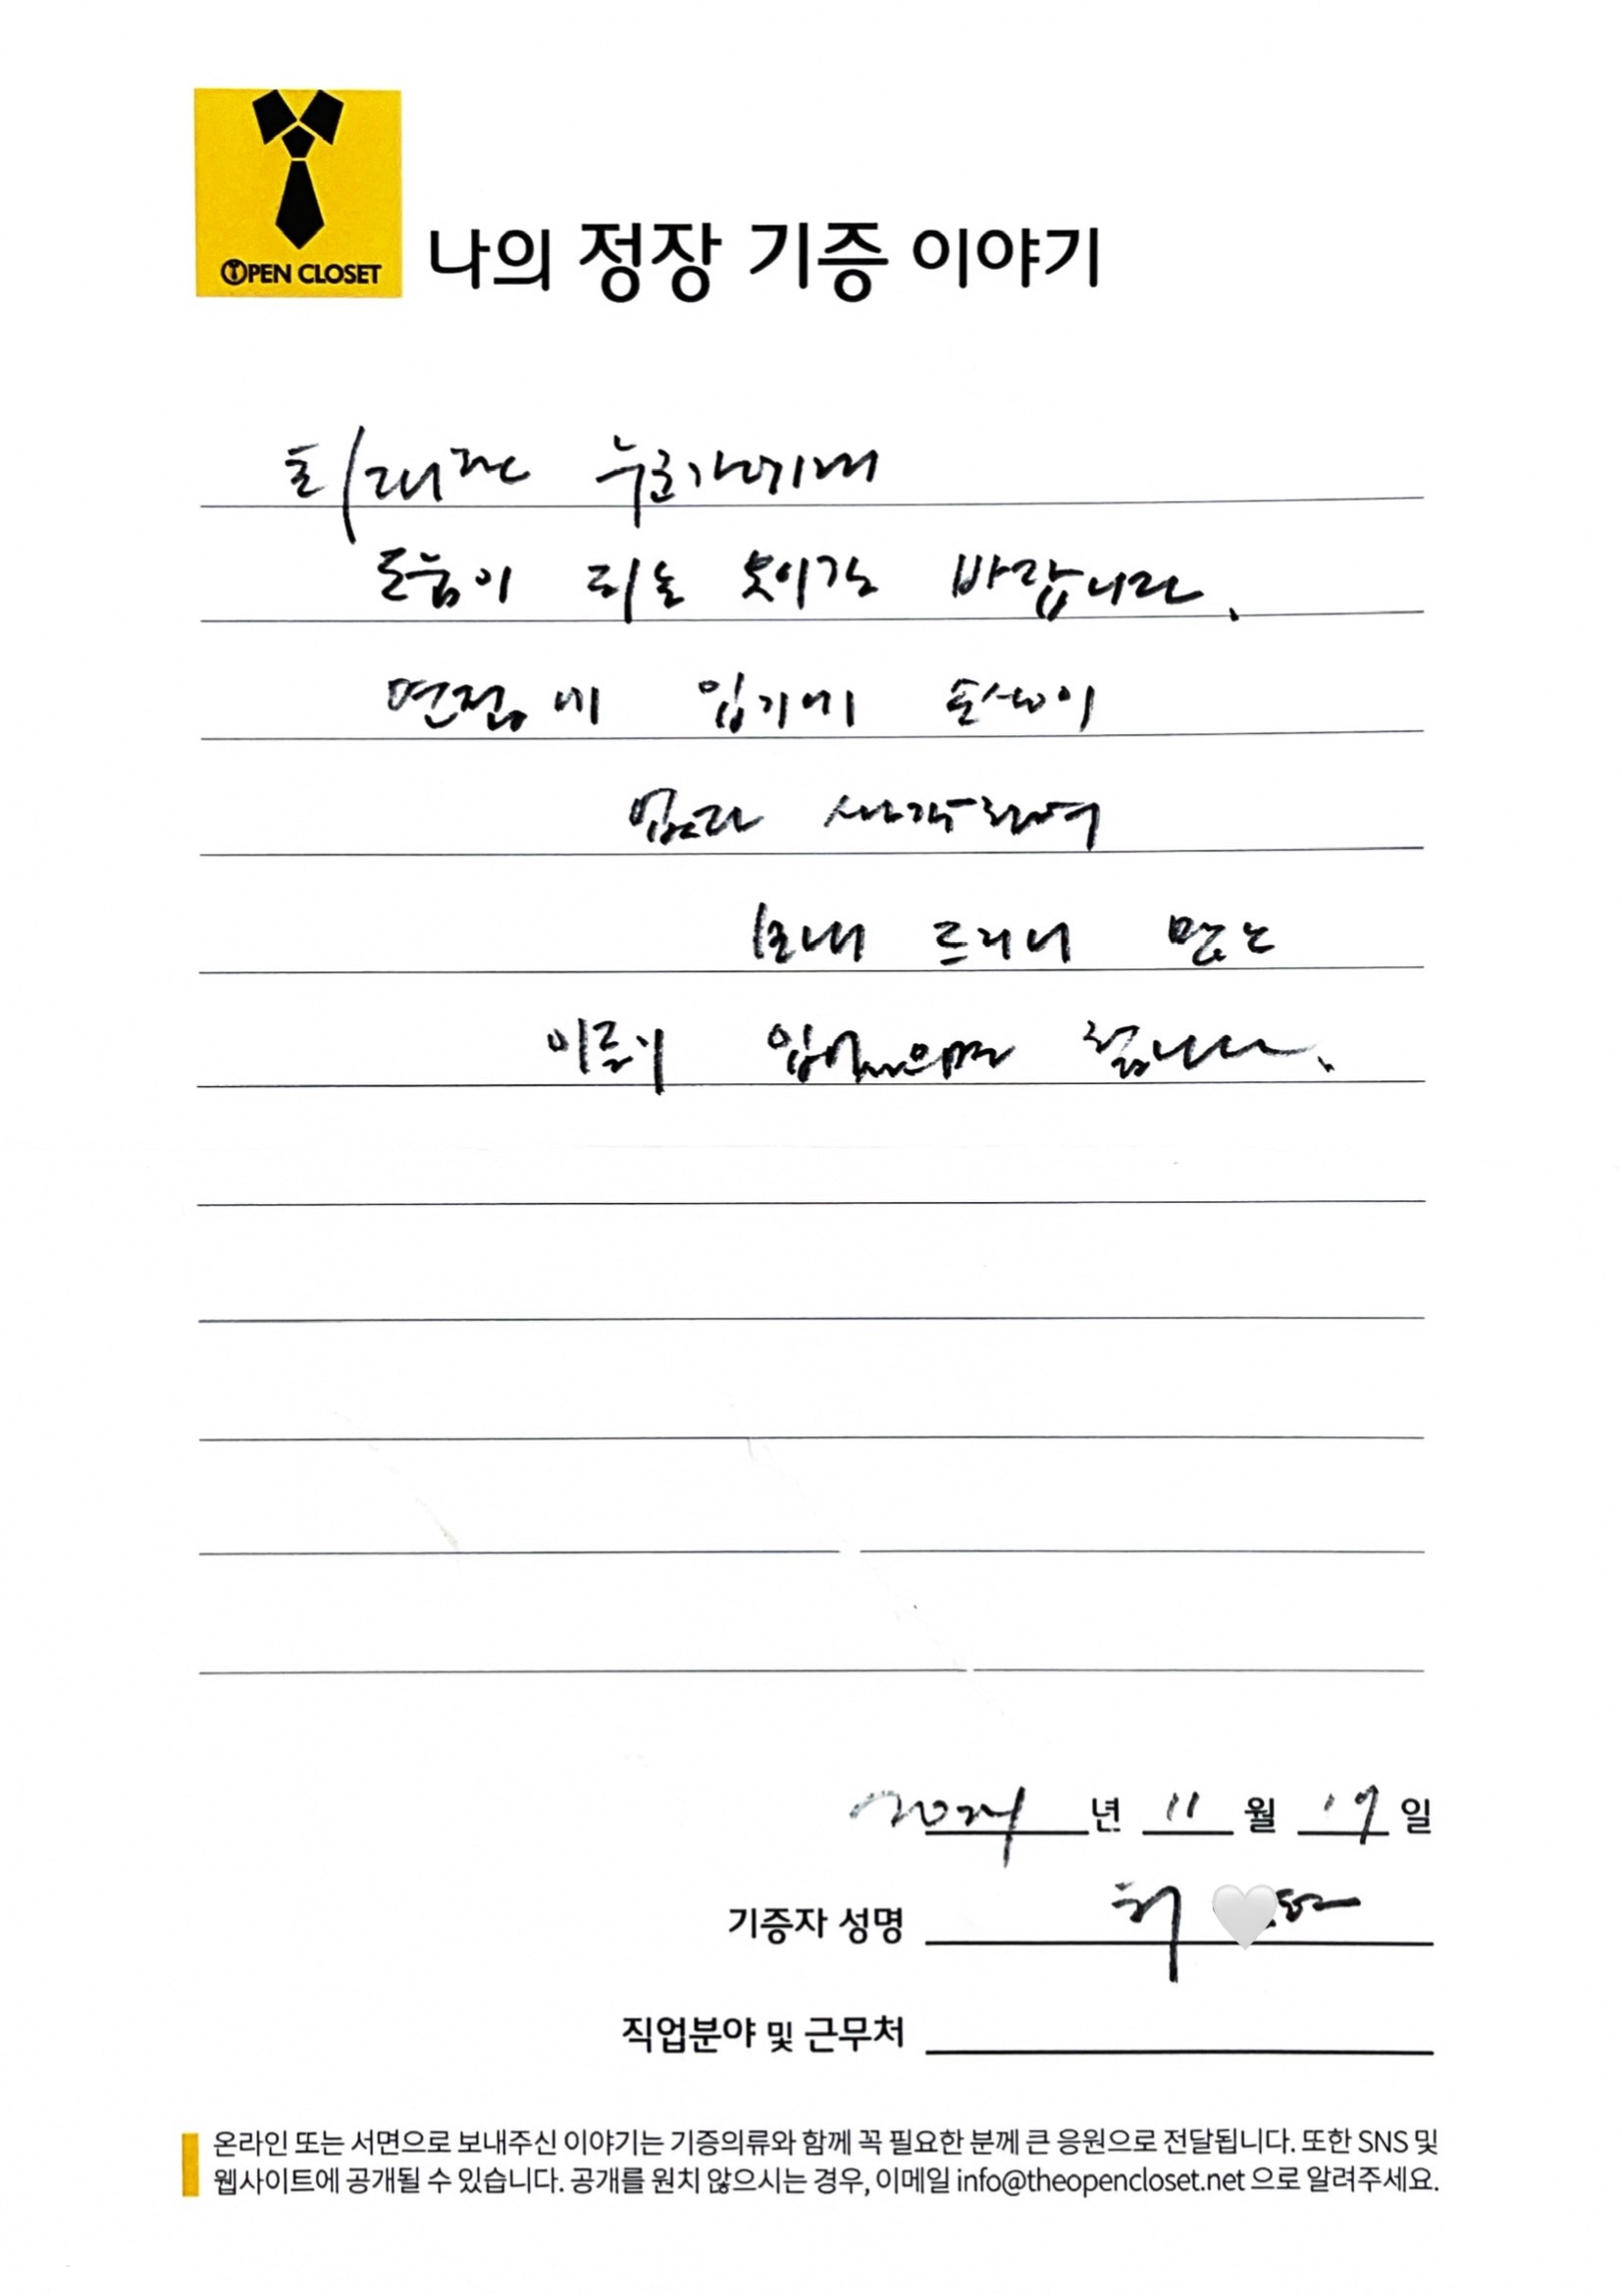 OPEN CLOSET
나의 정장 기증 이야기
누군가에게
도움이 되는 옷이길 바랍니다.
면접에 입기에 손상이
없다 생각하여
보내 드리니 맞는
이들이 입었으면 합니다.
2024년 11월 19일
기증자 성명 허
직업분야 및 근무처
온라인 또는 서면으로 보내주신 이야기는 기증의류와 함께 꼭 필요한 분께 큰 응원으로 전달됩니다. 또한 SNS 및
웹사이트에 공개될 수 있습니다. 공개를 원치 않으시는 경우, 이메일 info@theopencloset.net 으로 알려주세요.